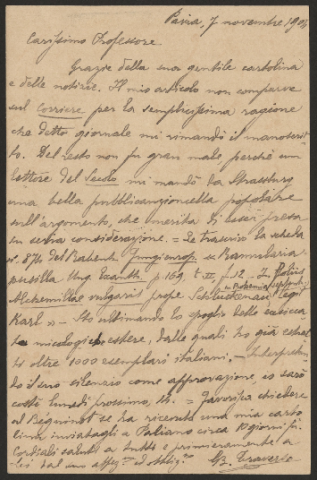 Pavia, 7 novembre, 190
Carissimo Professore
Grazie della sua gentile cartolina
e delle notizie. Il mio articolo non comparve
sul Corriere per la semplicissima ragione
che detto giornale mi rimandò il manoscrit-
to. Del resto non fu gran male, perchè un
lettore del Secolo mi mandò da Strassburg
una bella pubblicazioncella popolare
sull'argomento, che merita di esser presa
in seria considerazione. = Le trascrivo la scheda
n. 876 del Rabenh. Fungi europ. « Ramularia
pusilla Ung. Exanth. p 169, t. II, f. 12. - In foliis
Alchemillae vulgaris prope Schluckenau
Bohemiae septentr. legit
Karl » - Sto ultimando lo spoglio delle
micologiche estere, dalle quali ho già
ti oltre 1000 esemplari italiani. - Interpretan-
do il suo silenzio come approvazione, io sarò
costì lunedì prossimo, 16. = Favorisca chiedere
al Béguinot se ha ricevuto una mia carto-
lina inviatagli a Paliano circa 10 giorni fa.
Cordiali saluti a tutti e primieramente a
Lei dal suo affez.mo e obblig.mo
G.B. Traverso